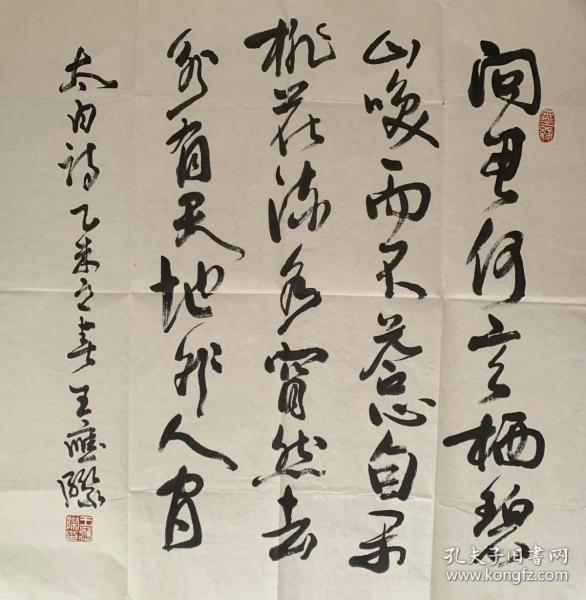 问君何意栖碧
山咲而不答心自闲
桃花流水窅然去
别有天地非人间
太白诗 乙未之春 王應
孔夫子旧书网
www.kongfz.com